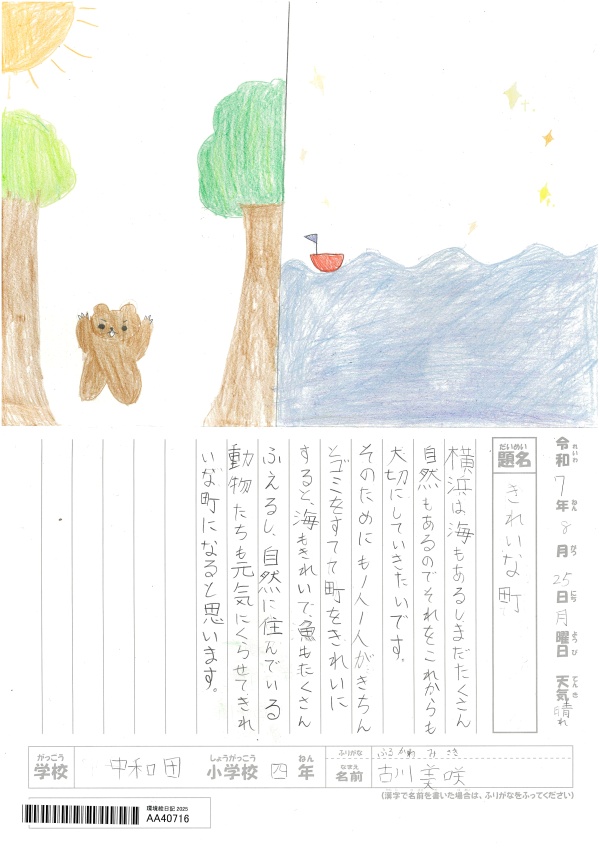 令和7年8月25日月曜日 天気晴れ
れいわ ねん がつ にち ようび てんき
だいめい
題名 きれいな町
横浜は海もあるしまだたくさん
自然もあるのでそれをこれからも
大切にしていきたいです。
そのためにも1人1人がきちん
とゴミをすてて町をきれいに
すると、海もきれいで、魚もたくさん
ふえるし、自然に住んでいる
動物たちも元気にくらせてきれ
いな町になると思います。
がっこう しょうがっこう ねん
学校 中和田 小学校 四年
ふりがな ふるかわ みさき
なまえ
名前 古川美咲
(漢字で名前を書いた場合は、ふりがなをふってください)
環境絵日記2025
AA40716